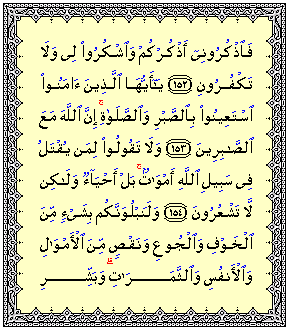 فَٱذْكُرُونِىٓ أَذْكُرْكُمْ وَٱشْكُرُوا۟ لِى وَلَا
تَكْفُرُونِ ﴿١٥٢﴾ يَـٰٓأَيُّهَا ٱلَّذِينَ ءَامَنُوا۟
ٱسْتَعِينُوا۟ بِٱلصَّبْرِ وَٱلصَّلَوٰةِ ۚ إِنَّ ٱللَّهَ مَعَ
ٱلصَّـٰبِرِينَ ﴿١٥٣﴾ وَلَا تَقُولُوا۟ لِمَن يُقْتَلُ
فِى سَبِيلِ ٱللَّهِ أَمْوَٰتٌۢ ۚ بَلْ أَحْيَآءٌ وَلَـٰكِن
لَّا تَشْعُرُونَ ﴿١٥٤﴾ وَلَنَبْلُوَنَّكُم بِشَىْءٍ مِّنَ
ٱلْخَوْفِ وَٱلْجُوعِ وَنَقْصٍ مِّنَ ٱلْأَمْوَٰلِ
وَٱلْأَنفُسِ وَٱلثَّمَرَٰتِ ۗ وَبَشِّرِ